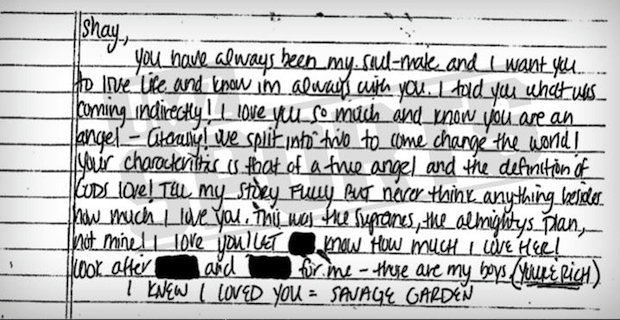 Shay,
you have always been my soul-mate and I want you
to live life and know im always with you. I told you what was
coming indirectly! I love you so much and know you are an
angel - literally! We split into two to come change the world!
your characteristics is that of a true angel and the definition of
GODS LOVE! TELL my story FULLY BUT never think anything besides
how much I love you. This was the Supremes, the almightys plan,
not mine! I love you! LET know HOW MUCH I LOVE HER!
look after and for me - those are my boys (YOU'RE RICH)
I KNEW I LOVED YOU = SAVAGE GARDEN